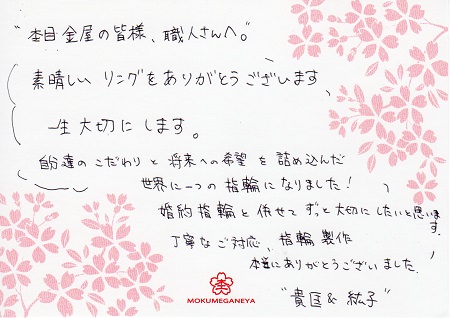 “杢目金屋の皆様、職人さんへ。”
素晴しい リングをありがとうございます、
一生大切にします。
自分達のこだわりと将来への希望を詰め込んだ
世界に一つの指輪になりました！
婚約指輪と併せてずっと大切にしたいと思います。
丁寧なご対応、指輪製作
本当にありがとうございました。
“貴匡 & 紘子”
杢
MOKUMEGANEYA